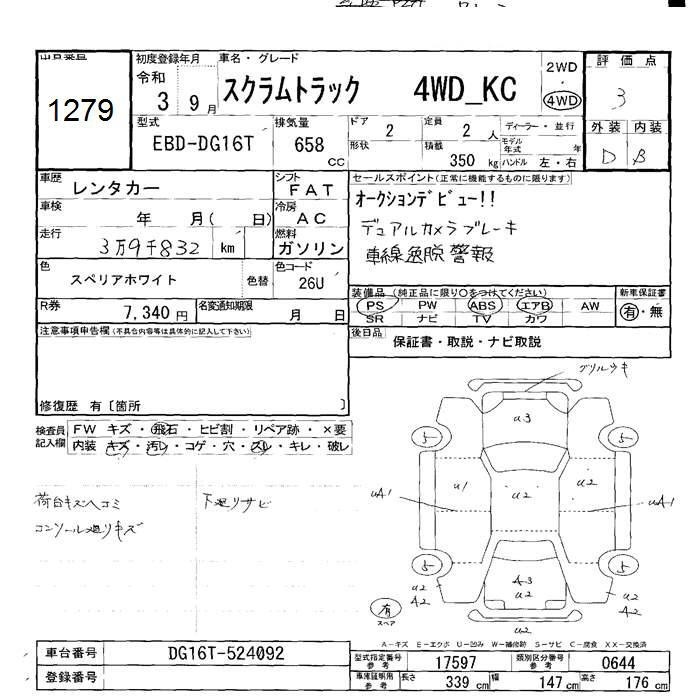 1279
初度登録年月
令和
3 9月
車名・グレード
スクラムトラック 4WD_KC
2WD
4WD
評価点
3
外装 内装
D B
型式
EBD-DG16T
排気量
658
CC
ドア
2
定員
2 人
ディーラー・並行
形状
積載
350 kg
モデル年式
年
ハンドル 左・右
車歴
レンタカー
シフト
FAT
車検
年 月( 日)
冷房
AC
走行
3万9千832 km
燃料
ガソリン
色
スペリアホワイト
色替
色コード
26U
R券
7,340円
名変通知期限
月 日
セールスポイント(正常に機能するものに限ります)
オークションデビュー!!
デュアルカメラブレーキ
車線逸脱警報
装備品(純正品に限り○をつけてください)
PS PW ABS エアB AW
SR ナビ TV カワ
新車保証書
有・無
後日品
保証書・取説・ナビ取説
注意事項申告欄(不具合内容等は具体的に記入して下さい)
修復歴 有〔箇所 〕
検査員記入欄
FW キズ・飛石・ヒビ割・リペア跡・×要
内装 キズ・汚レ・コゲ・穴・スレ・キレ・破レ
荷台キズヘコミ
コンソール廻りキズ
下廻りサビ
グリルツキ
u3
5 5
u1 u2 u2
uA1 uA1
5 5
A3
u2
u2
A2
u2
A2
u2
有
スペア
A-キズ E-エクボ U-凹み W-補修跡 S-サビ C-腐食 XX-交換済
車台番号
DG16T-524092
登録番号
型式指定番号
参考
17597
類別区分番号
参考
0644
車庫証明用
参考
長さ 339 cm
幅 147 cm
高さ 176 cm